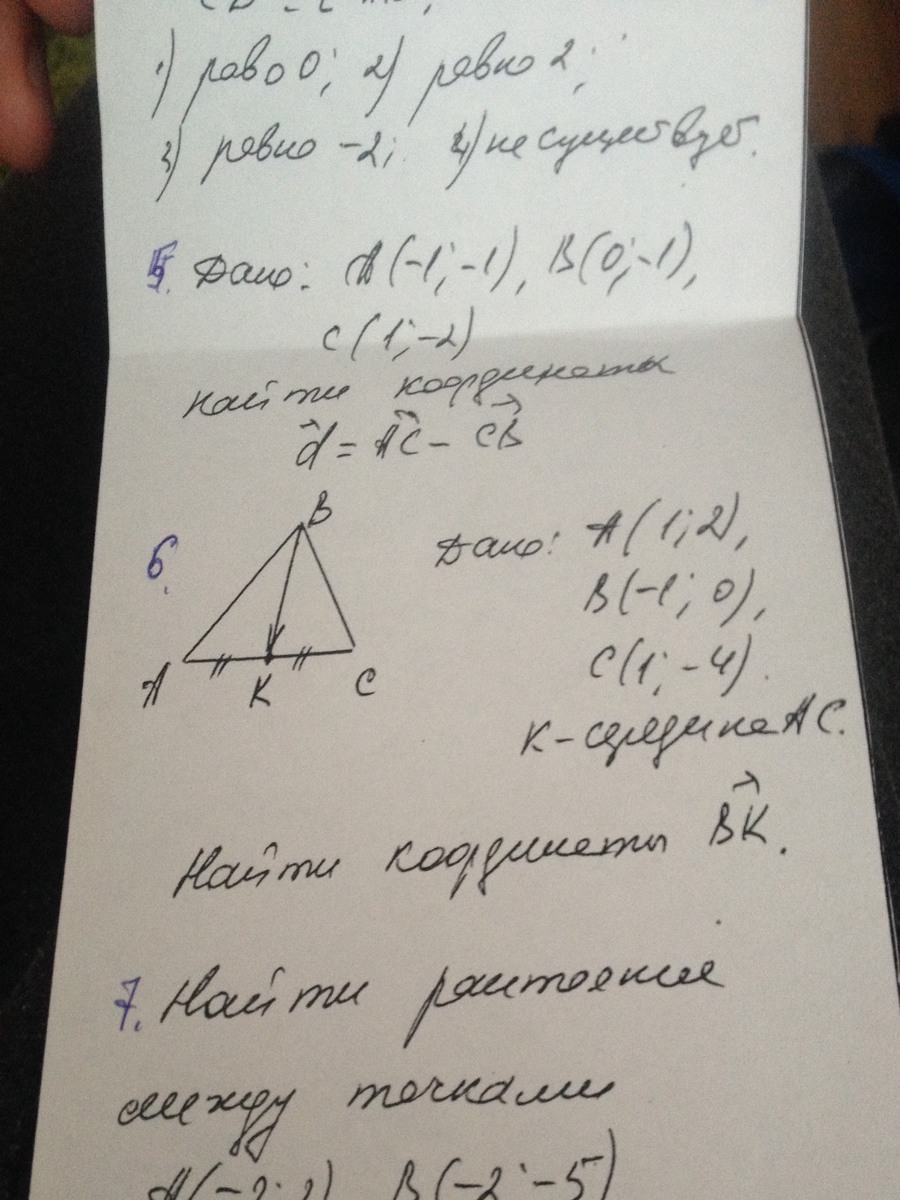 1) равно 0; 2) равно 2;
3) равно -2; 4) не существует.
5. Дано: A(-1; -1), B(0; -1),
C(1; -2)
Найти координаты
d = AC - CB
B
6. Дано: A(1; 2),
B(-1; 0),
C(1; -4).
A K C
K - середина AC.
Найти координаты BK.
7. Найти расстояние
между точками
B(-2; -5)